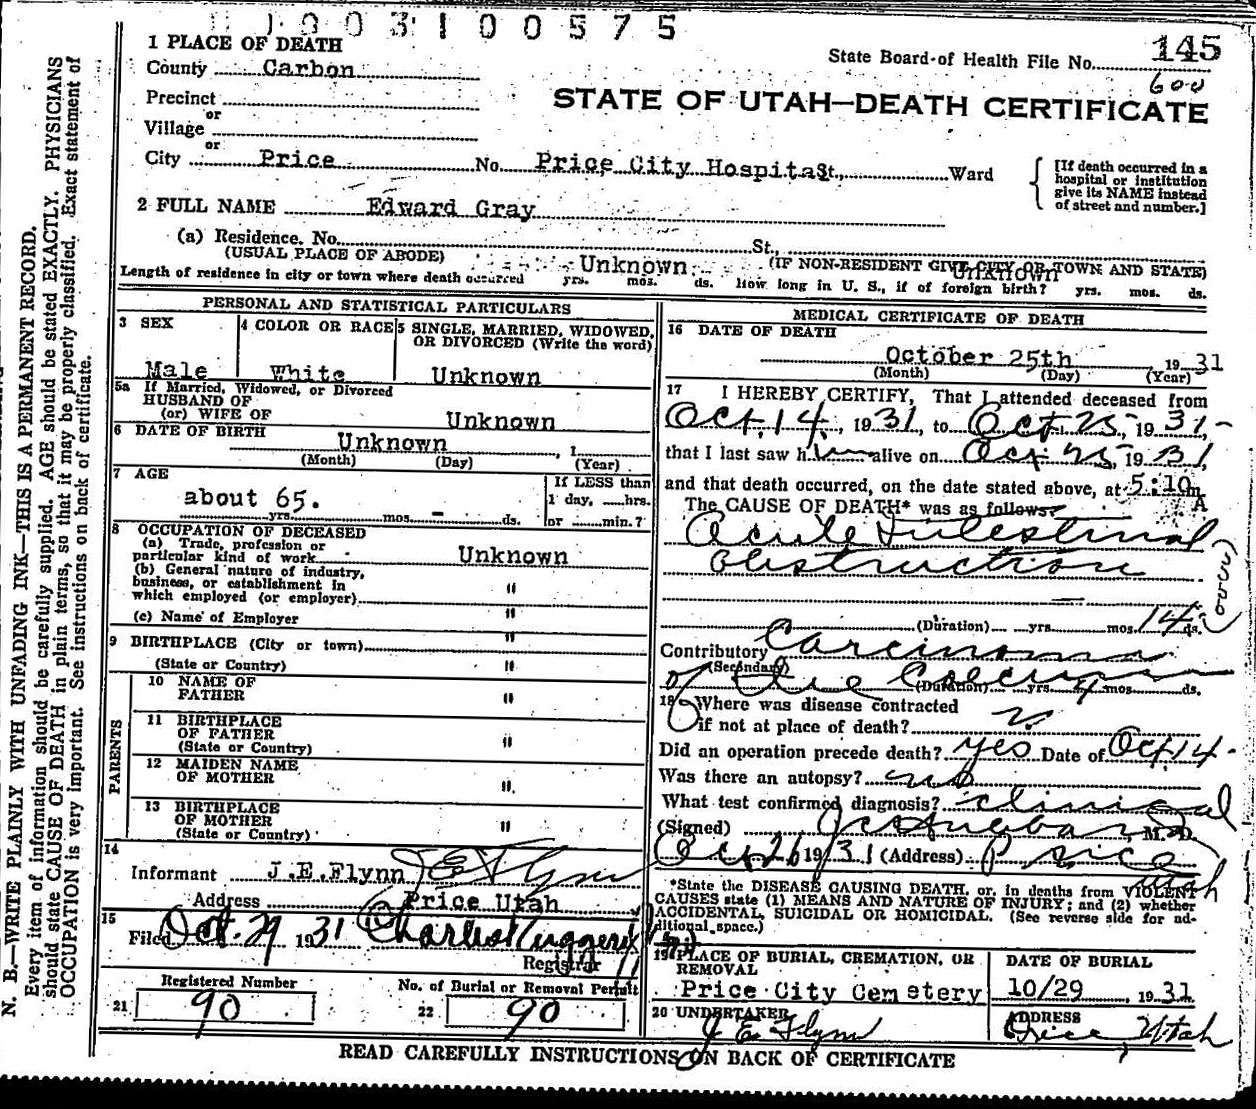 1003100575
1 PLACE OF DEATH
State Board of Health File No. 145
County Carbon
600
STATE OF UTAH—DEATH CERTIFICATE
Precinct
or
Village
or
City Price No. Price City Hospital St., Ward
[If death occurred in a hospital or institution give its NAME instead of street and number.]
2 FULL NAME Edward Gray
(a) Residence. No. St.,
(USUAL PLACE OF ABODE) (IF NON-RESIDENT GIVE CITY OR TOWN AND STATE)
Unknown Unknown
Length of residence in city or town where death occurred yrs. mos. ds. How long in U. S., if of foreign birth? yrs. mos. ds.
PERSONAL AND STATISTICAL PARTICULARS
3 SEX
Male
4 COLOR OR RACE
White
5 SINGLE, MARRIED, WIDOWED,
OR DIVORCED (Write the word)
Unknown
5a If Married, Widowed, or Divorced
HUSBAND OF
(or) WIFE OF Unknown
6 DATE OF BIRTH Unknown , 1
(Month) (Day) (Year)
7 AGE
about 65.
yrs. mos. – ds.
If LESS than
1 day, hrs.
or min.?
8 OCCUPATION OF DECEASED
(a) Trade, profession or
particular kind of work Unknown
(b) General nature of industry,
business, or establishment in
which employed (or employer) "
(c) Name of Employer "
9 BIRTHPLACE (City or town) "
(State or Country) "
PARENTS
10 NAME OF
FATHER "
11 BIRTHPLACE
OF FATHER
(State or Country) "
12 MAIDEN NAME
OF MOTHER "
13 BIRTHPLACE
OF MOTHER
(State or Country) "
14
Informant J.E.Flynn J E Flynn
Address Price Utah
15
Filed Oct. 29 1931 Charles Ruggeri
Registrar
Registered Number
21 90
No. of Burial or Removal Permit
22 90
MEDICAL CERTIFICATE OF DEATH
16 DATE OF DEATH
October 25th 1931
(Month) (Day) (Year)
17 I HEREBY CERTIFY, That I attended deceased from
Oct. 14, 1931, to Oct 25, 1931-
that I last saw him alive on Oct 25, 1931,
and that death occurred, on the date stated above, at 5:10 m.
A
The CAUSE OF DEATH* was as follows:
Acute Intestinal
Obstruction
(over)
(Duration) yrs. mos. 14 ds.
Contributory Carcinoma
(Secondary)
of the
(Duration) yrs. 4 mos. ds.
18 Where was disease contracted
if not at place of death?
Did an operation precede death? yes Date of Oct. 14-
Was there an autopsy? no
What test confirmed diagnosis? clinical
(Signed) M. D.
Oct 26 1931 (Address) Price
Utah
*State the DISEASE CAUSING DEATH, or, in deaths from VIOLENT
CAUSES state (1) MEANS AND NATURE OF INJURY; and (2) whether
ACCIDENTAL, SUICIDAL OR HOMICIDAL. (See reverse side for ad-
ditional space.)
19 PLACE OF BURIAL, CREMATION, OR
REMOVAL
Price City Cemetery
DATE OF BURIAL
10/29, 1931
20 UNDERTAKER
J E Flynn
ADDRESS
Price, Utah
READ CAREFULLY INSTRUCTIONS ON BACK OF CERTIFICATE
N. B.—WRITE PLAINLY WITH UNFADING INK—THIS IS A PERMANENT RECORD.
Every item of information should be carefully supplied. AGE should be stated EXACTLY. PHYSICIANS
should state CAUSE OF DEATH in plain terms, so that it may be properly classified. Exact statement of
OCCUPATION is very important. See instructions on back of certificate.